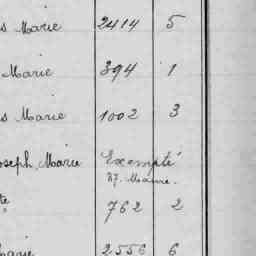 s Marie 2414 5
Marie 394 1
s Marie 1002 3
oseph Marie Exempté
37. Maine.
te 762 2
Marie 2556 6